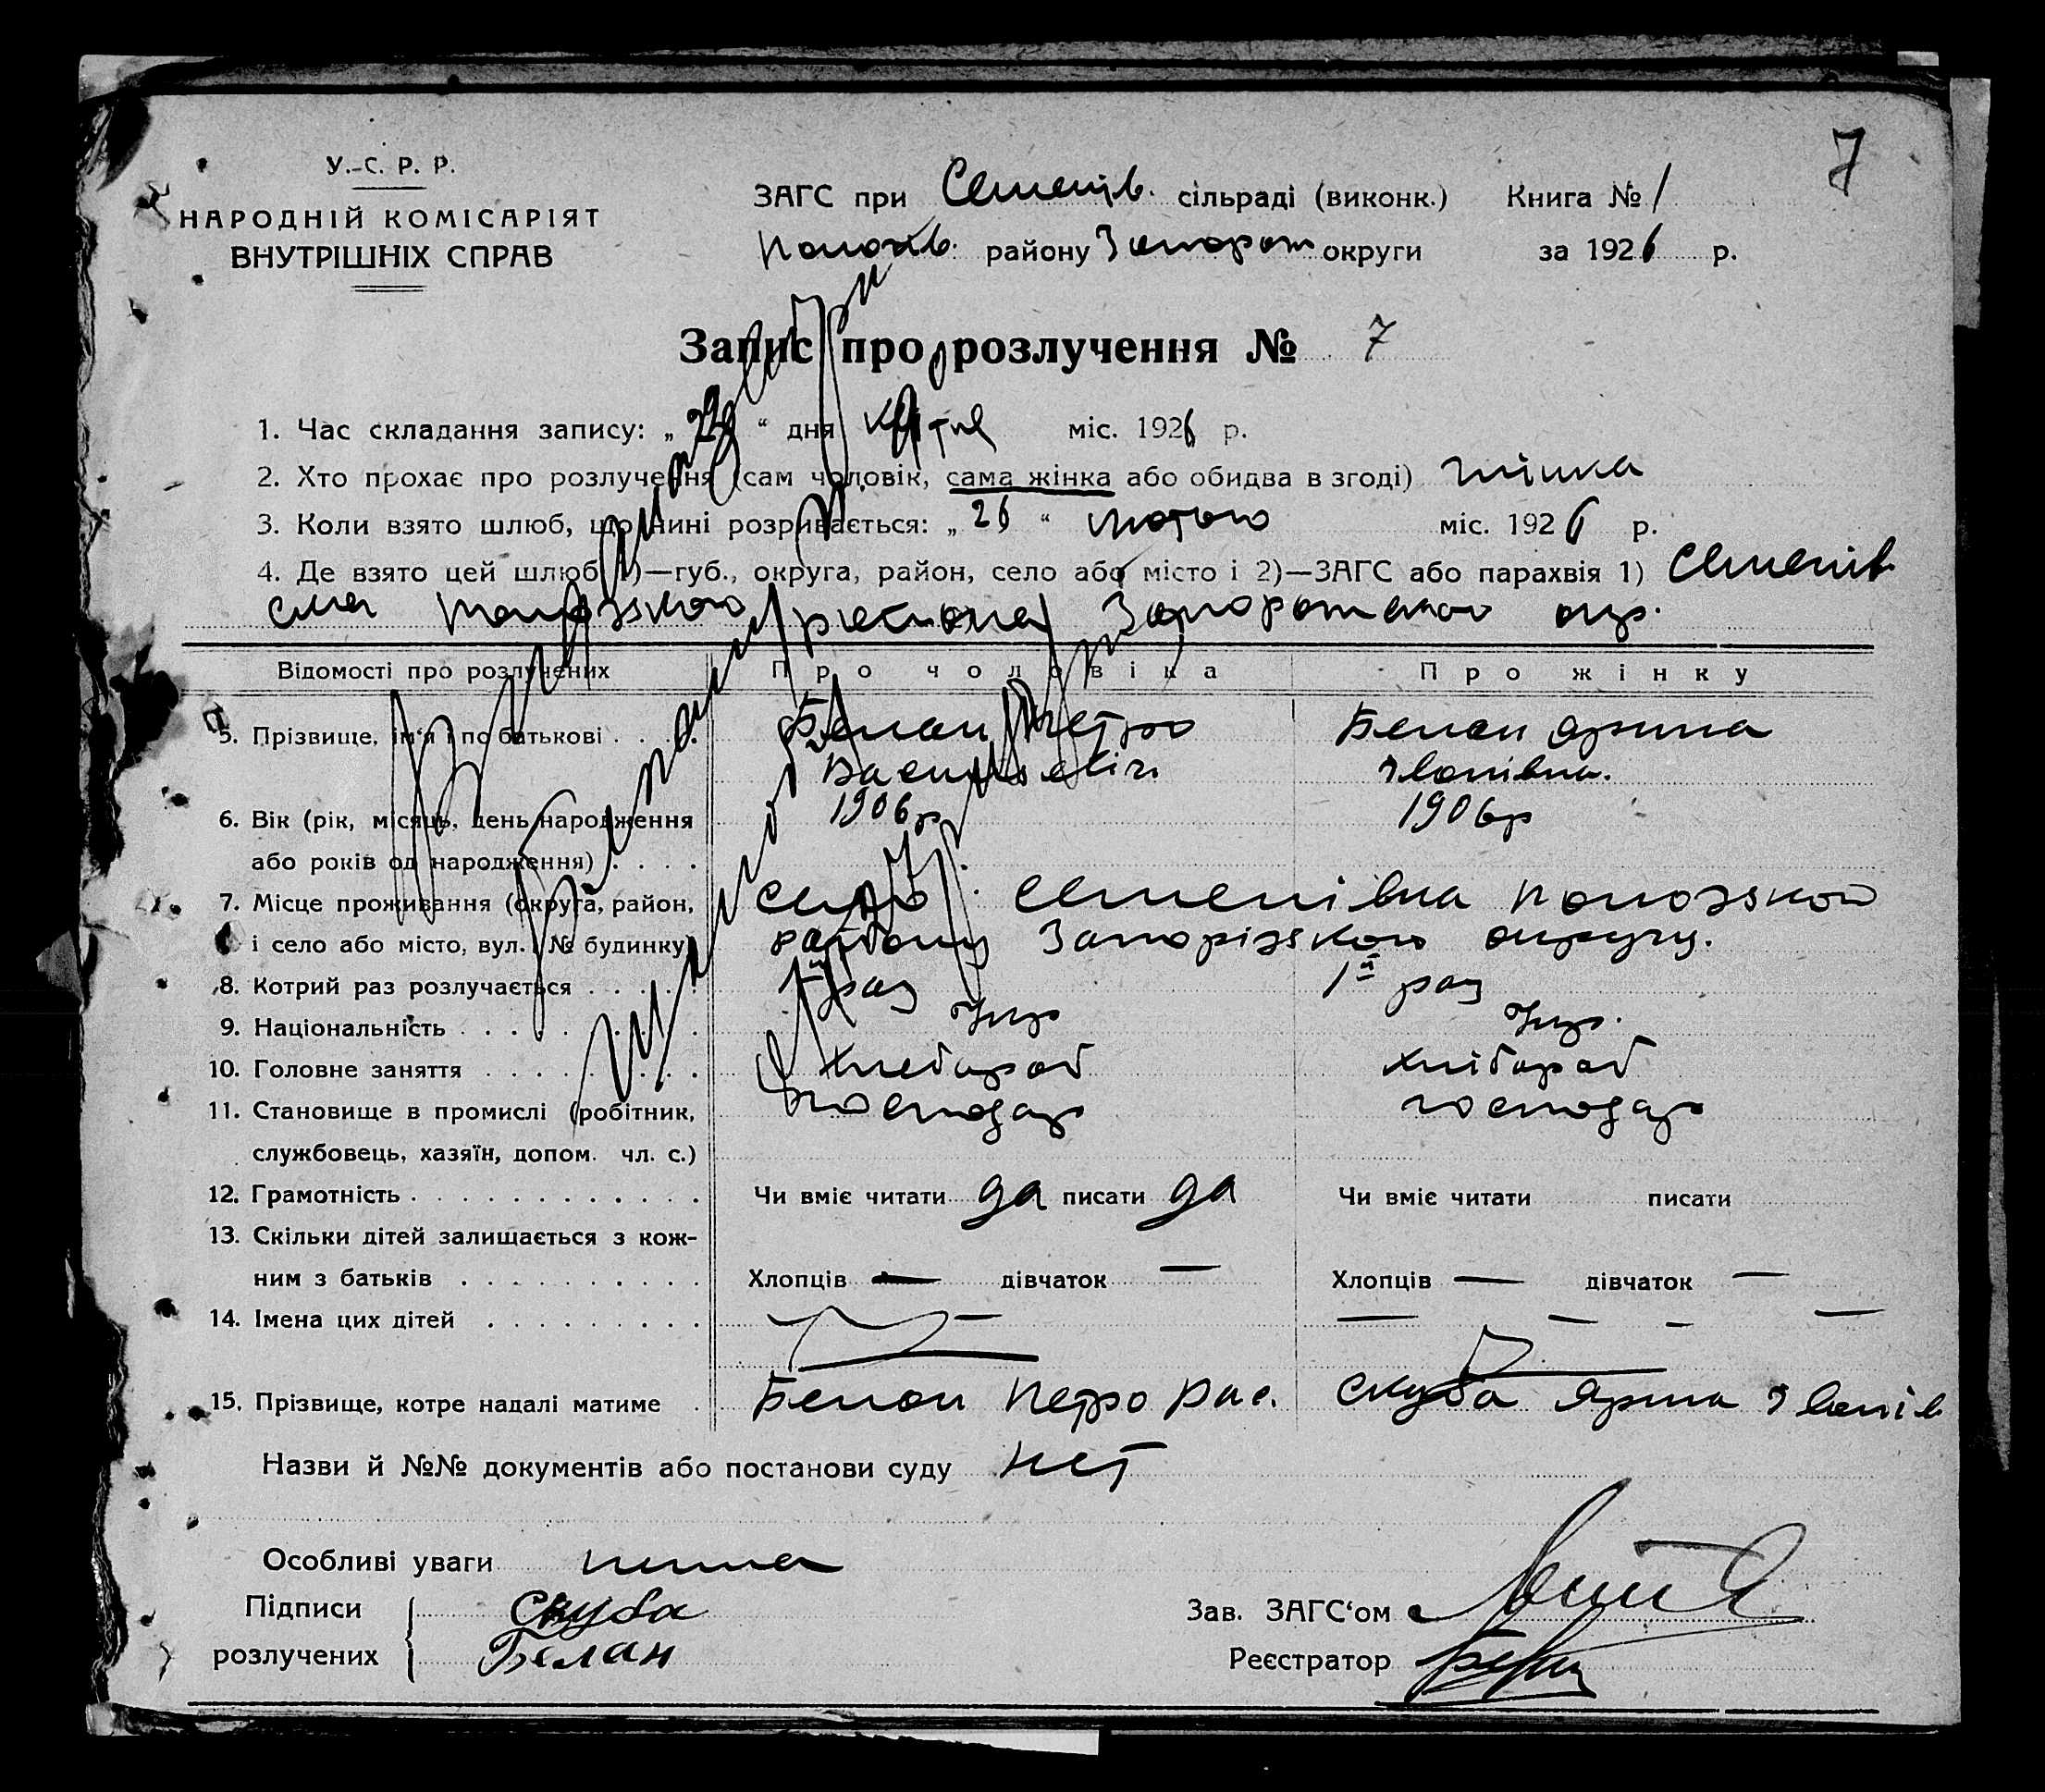 7
У.-С. Р. Р.
НАРОДНІЙ КОМІСАРІЯТ
ВНУТРІШНІХ СПРАВ
ЗАГС при Семенів. сільраді (виконк.) Книга № 1
Полохів. району Запорож округи за 1926 р.
Запис про розлучення № 7
1. Час складання запису: „ “ дня квітня міс. 1926 р.
2. Хто прохає про розлучення (сам чоловік, сама жінка або обидва в згоді) жінка
3. Коли взято шлюб, що нині розривається: „26“ лютого міс. 1926 р.
4. Де взято цей шлюб 1)—губ., округа, район, село або місто і 2)—ЗАГС або парахвія 1) Семенів
района Запорожського окр.
Відомості про розлучених Про чоловіка Про жінку
5. Прізвище, ім'я і по батькові . . . . Белан Петро Белан Ярина
Васильевіч Іванівна.
6. Вік (рік, місяць, день народження 1906р 1906р
або років од народження) . . . .
7. Місце проживання (округа, район, село Семенівка Положской
і село або місто, вул. № будинку) району Запоріжского округу.
8. Котрий раз розлучається . . . . . 1й раз 1й раз
9. Національність . . . . . . . . . Укр Укр.
10. Головне заняття . . . . . . . . . Хлебороб хлібороб
11. Становище в промислі (робітник, господар господар
службовець, хазяїн, допом. чл. с.)
12. Грамотність . . . . . . . . . . . . Чи вміє читати да писати да Чи вміє читати писати
13. Скільки дітей залищається з кож-
ним з батьків . . . . . . . . . . Хлопців — дівчаток — Хлопців — дівчаток —
14. Імена цих дітей . . . . . . . . . — — — — —
15. Прізвище, котре надалі матиме . Белан Петро Вас. Скуба Ярина Іванів
Назви й №№ документів або постанови суду нет
Особливі уваги нима
Підписи Скуба Зав. ЗАГС'ом
розлучених Белан Реєстратор